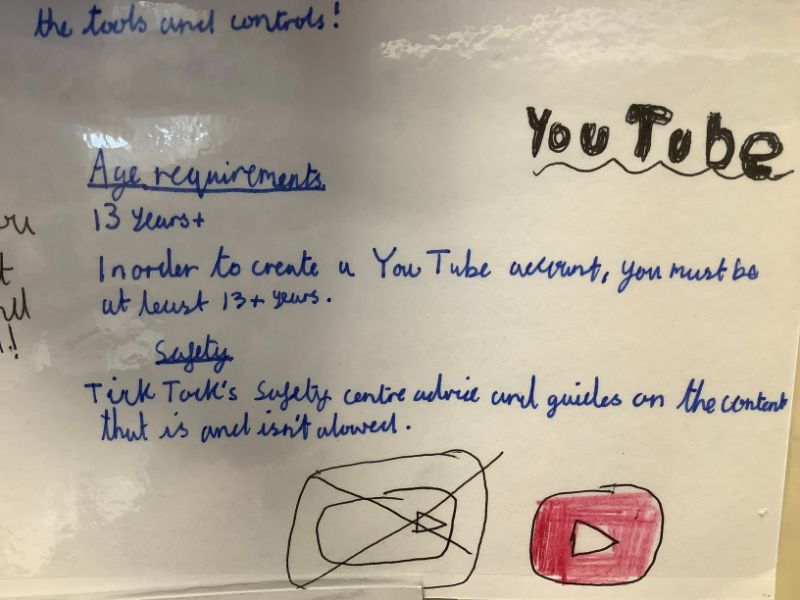 the tools and controls!
YouTube
Age requirements
13 years+
In order to create a YouTube account, you must be
at least 13+ years.
Safety
Tick Tock's Safety centre advice and guides on the content
that is and isn't alowed.